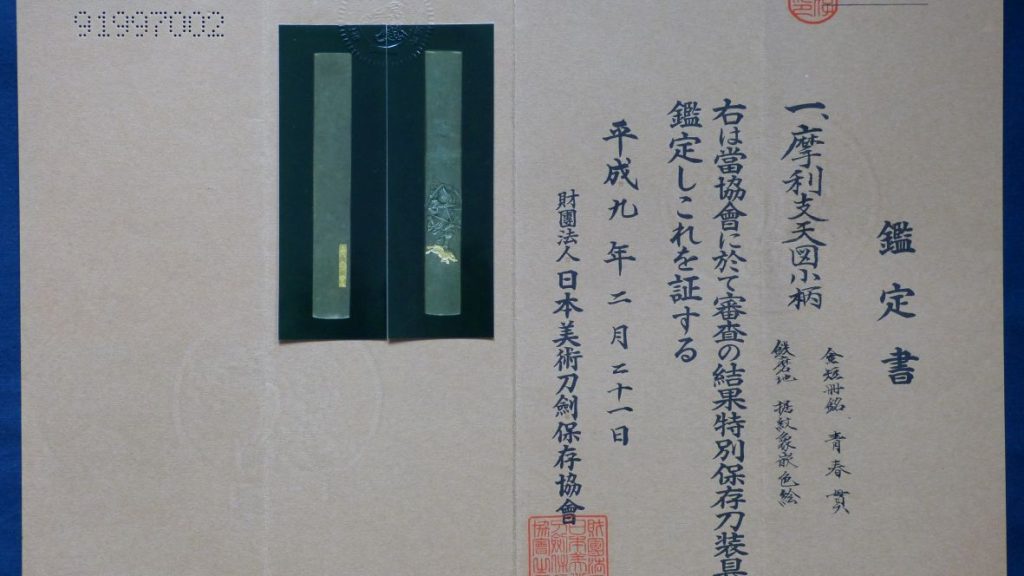 91997002
鑑定書
一、摩利支天図小柄
金短冊銘 青春貫
鉄磨地 据紋象嵌色絵
右は當協會に於て審査の結果特別保存刀装具
鑑定しこれを証する
平成九年二月二十一日
財團法人日本美術刀劍保存協會